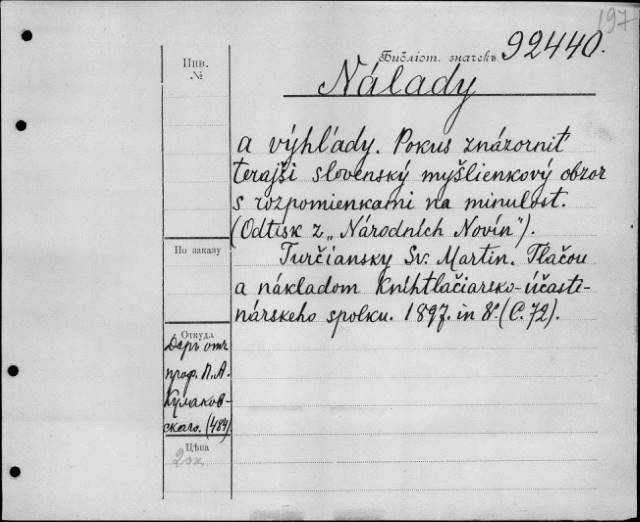 197
Библіот. значекъ 92440.
Инв.
№
Nálady
a výhľady. Pokus znázorniť
terajší slovenský myšlienkový obzor
s rozpomienkami na minulosť.
(Odtisk z „Národních Novín").
По заказу
Turčiansky Sv. Martin. Tlačou
a nákladom Kníhtlačiarsko-účasti-
nárskeho spolku. 1897. in 8º. (С. 72).
Откуда
Даръ отъ
проф. П. А.
Кулаков-
скаго. (484)
Цѣна